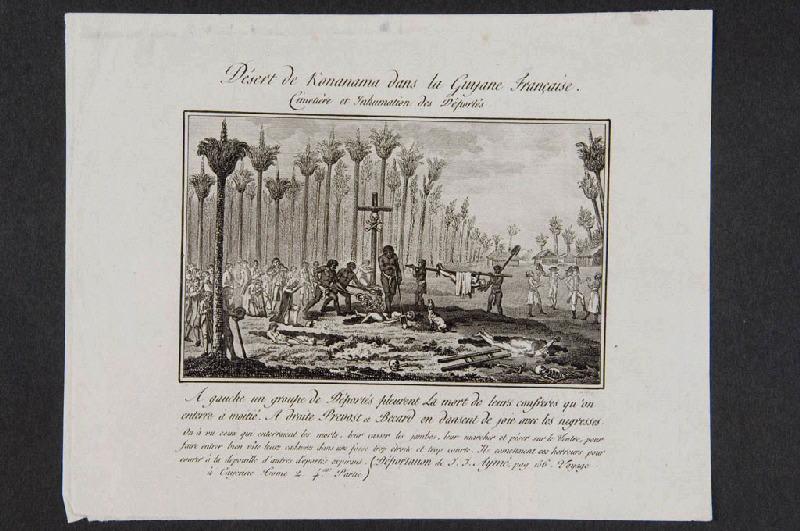 Désert de Konanama dans la Guyane Française.
Cimetière et Inhumation des Déportés
A gauche un groupe de Déportés pleurent la mort de leurs confreres qu'on
enterre a moitié. A droite Prevost et Becard en dansent de joie avec les negresses.
On a vu ceux qui enterroient les morts, leur casser les jambes, leur marcher et peser sur le Ventre, pour
faire entrer bien vite leurs cadavres dans une fosse trop etroite et trop courte. Ils commettoient ces horreurs pour
courir à la depouille d'autres deportés expirans. (Déportation de J. J. Aymé, pag 156. Voyage
à Cayenne Tome 2 4me Partie)